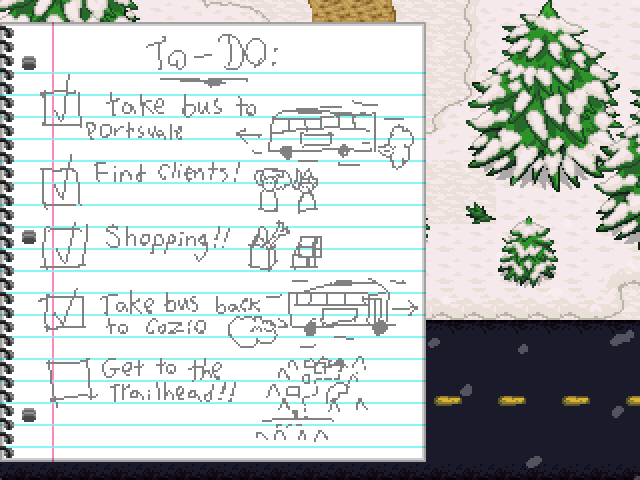 To-Do:
Take bus to
Portsvale
Find Clients!
Shopping!!
Take bus back
to Cozio
Get to the
Trailhead!!